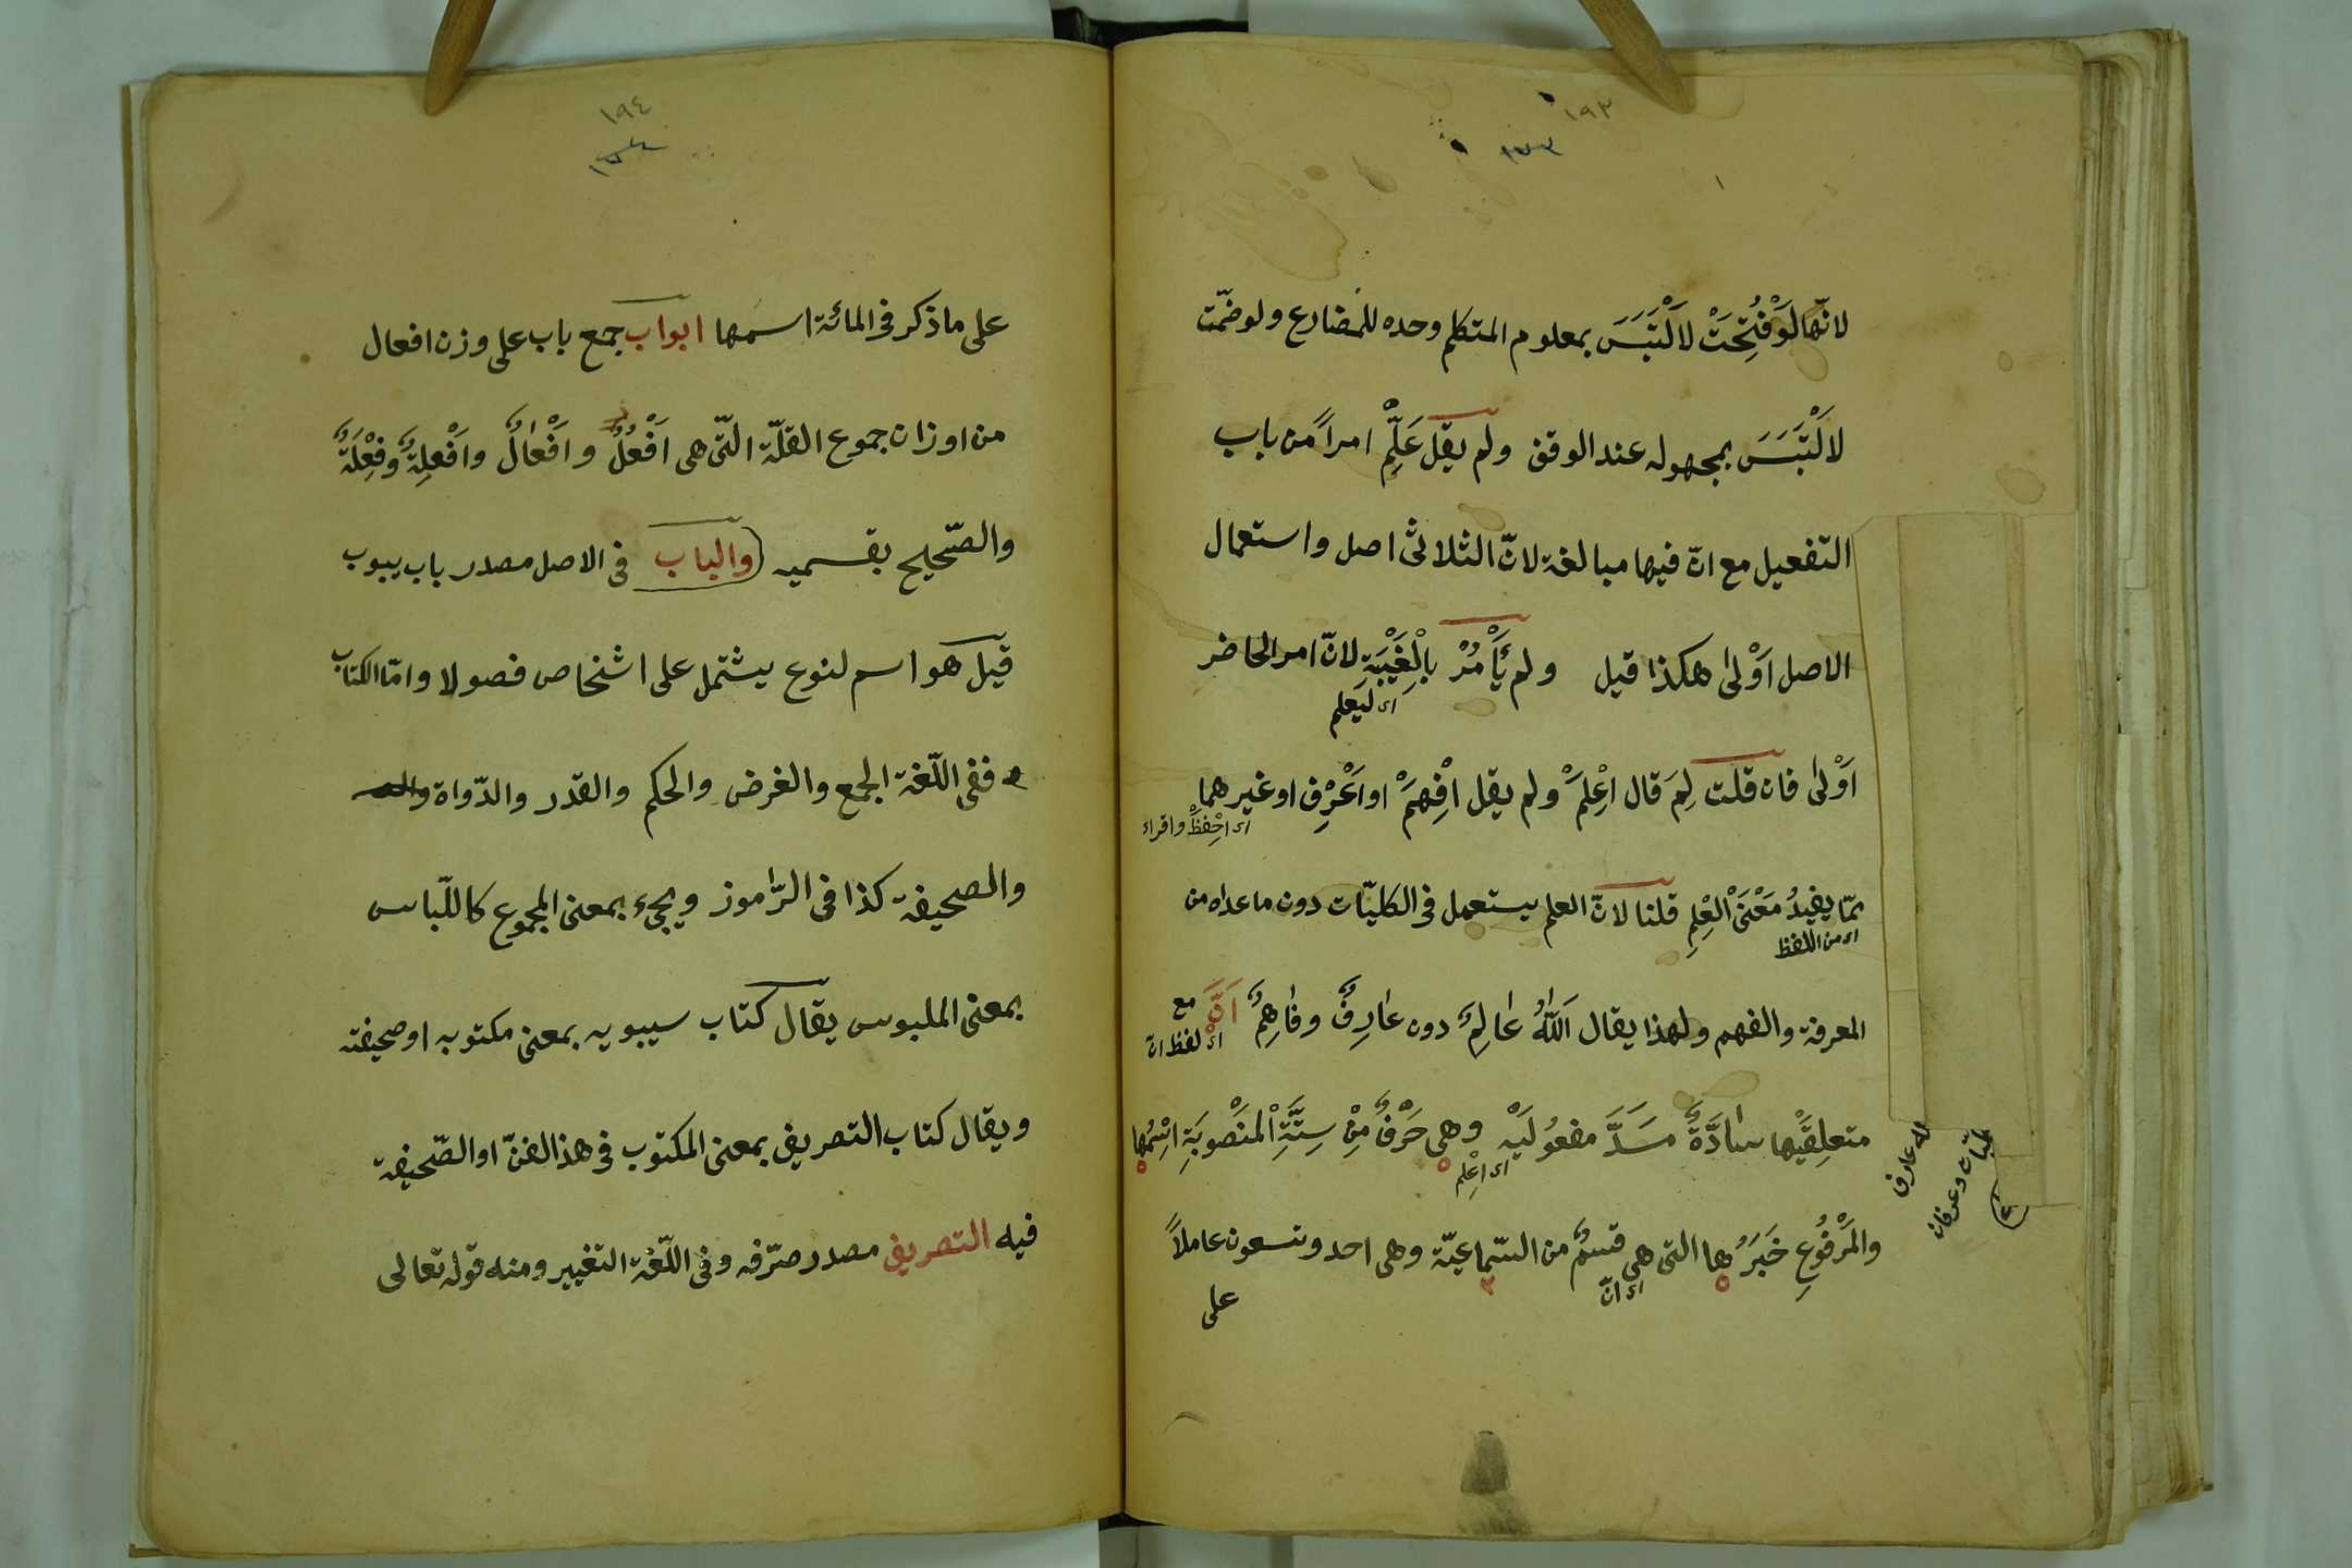 ١٩٣
١٧٣
لانّها لَوْ فُتِحَتْ لَالْتَبَسَ بمعلوم المتكلم وحده للمضارع ولو ضمّت
لَالْتَبَسَ بمجهوله عند الوقف ولم يقل عَلِّمْ امراً من باب
التفعيل مع انّ فيها مبالغة لانّ الثلاثى اصل واستعمال
الاصل اَوْلىٰ هكذا قيل ولم يَأْمُرْ بِالْغَيْبَةِ لانّ امر الحاضر
اى ليَعلم
اَوْلىٰ فان قلت لِمَ قال اعْلِمَْ ولم يقل اْفِهَمْ او اَعْرِف او غيرهما
اى احْفِظْ واقراء
ممّا يفيدُ مَعْنَىَ الْعِلِمِ قلنا لانّ العلم يستعمل فى الكليّات دون ما عداه من
اى من اللفظ
المعرفة والفهم ولهذا يقال اَللّٰهُ عٰالِمٌ دون عٰارِفٌ وفٰاهِمٌ اَنَّ مع
اى لفظ انّ
متعلِقَيْها سٰادَّةٌ مَسَدَّ مفعُولَيْهِ وهى حَرْفٌ مِنْ سِتَّةِ الْمَنْصوبَةِ اسْمُها
اى اعْلِم
والمَرْفُوعِ خَبَرُها التى هى قسمٌ من السّماعيّة وهى احد وتسعون عاملاً
اى انّ
على
١٩٤
على ما ذكر فى المائة اسمها ابواب جمع باب على وزن افعال
من اوزان جموع القلّة الّتى هى اَفْعُلٌ واَفْعٰالٌ واَفْعِلِةٌ وفِعْلَةٌ
والصّحيح بقسميه والباب فى الاصل مصدر باب يبوب
قيل هو اسم لنوع يشتمل على اشخاص فصولا وامّا الكتاب
ففى اللّغة الجمع والغرض والحكم والقدر والدّواة
والصحيفة كذا فى الرّاموز ويجىء بمعنى المجموع كاللّباس
بمعنى الملبوس يقال كتاب سيبويه بمعنى مكتوبه او صحيفته
ويقال كتاب التصريف بمعنى المكتوب فى هذا الفنّ او الصّحيفة
فيه التصريف مصدر صرّفه وفى اللّغة التغيير ومنه قوله تعالى